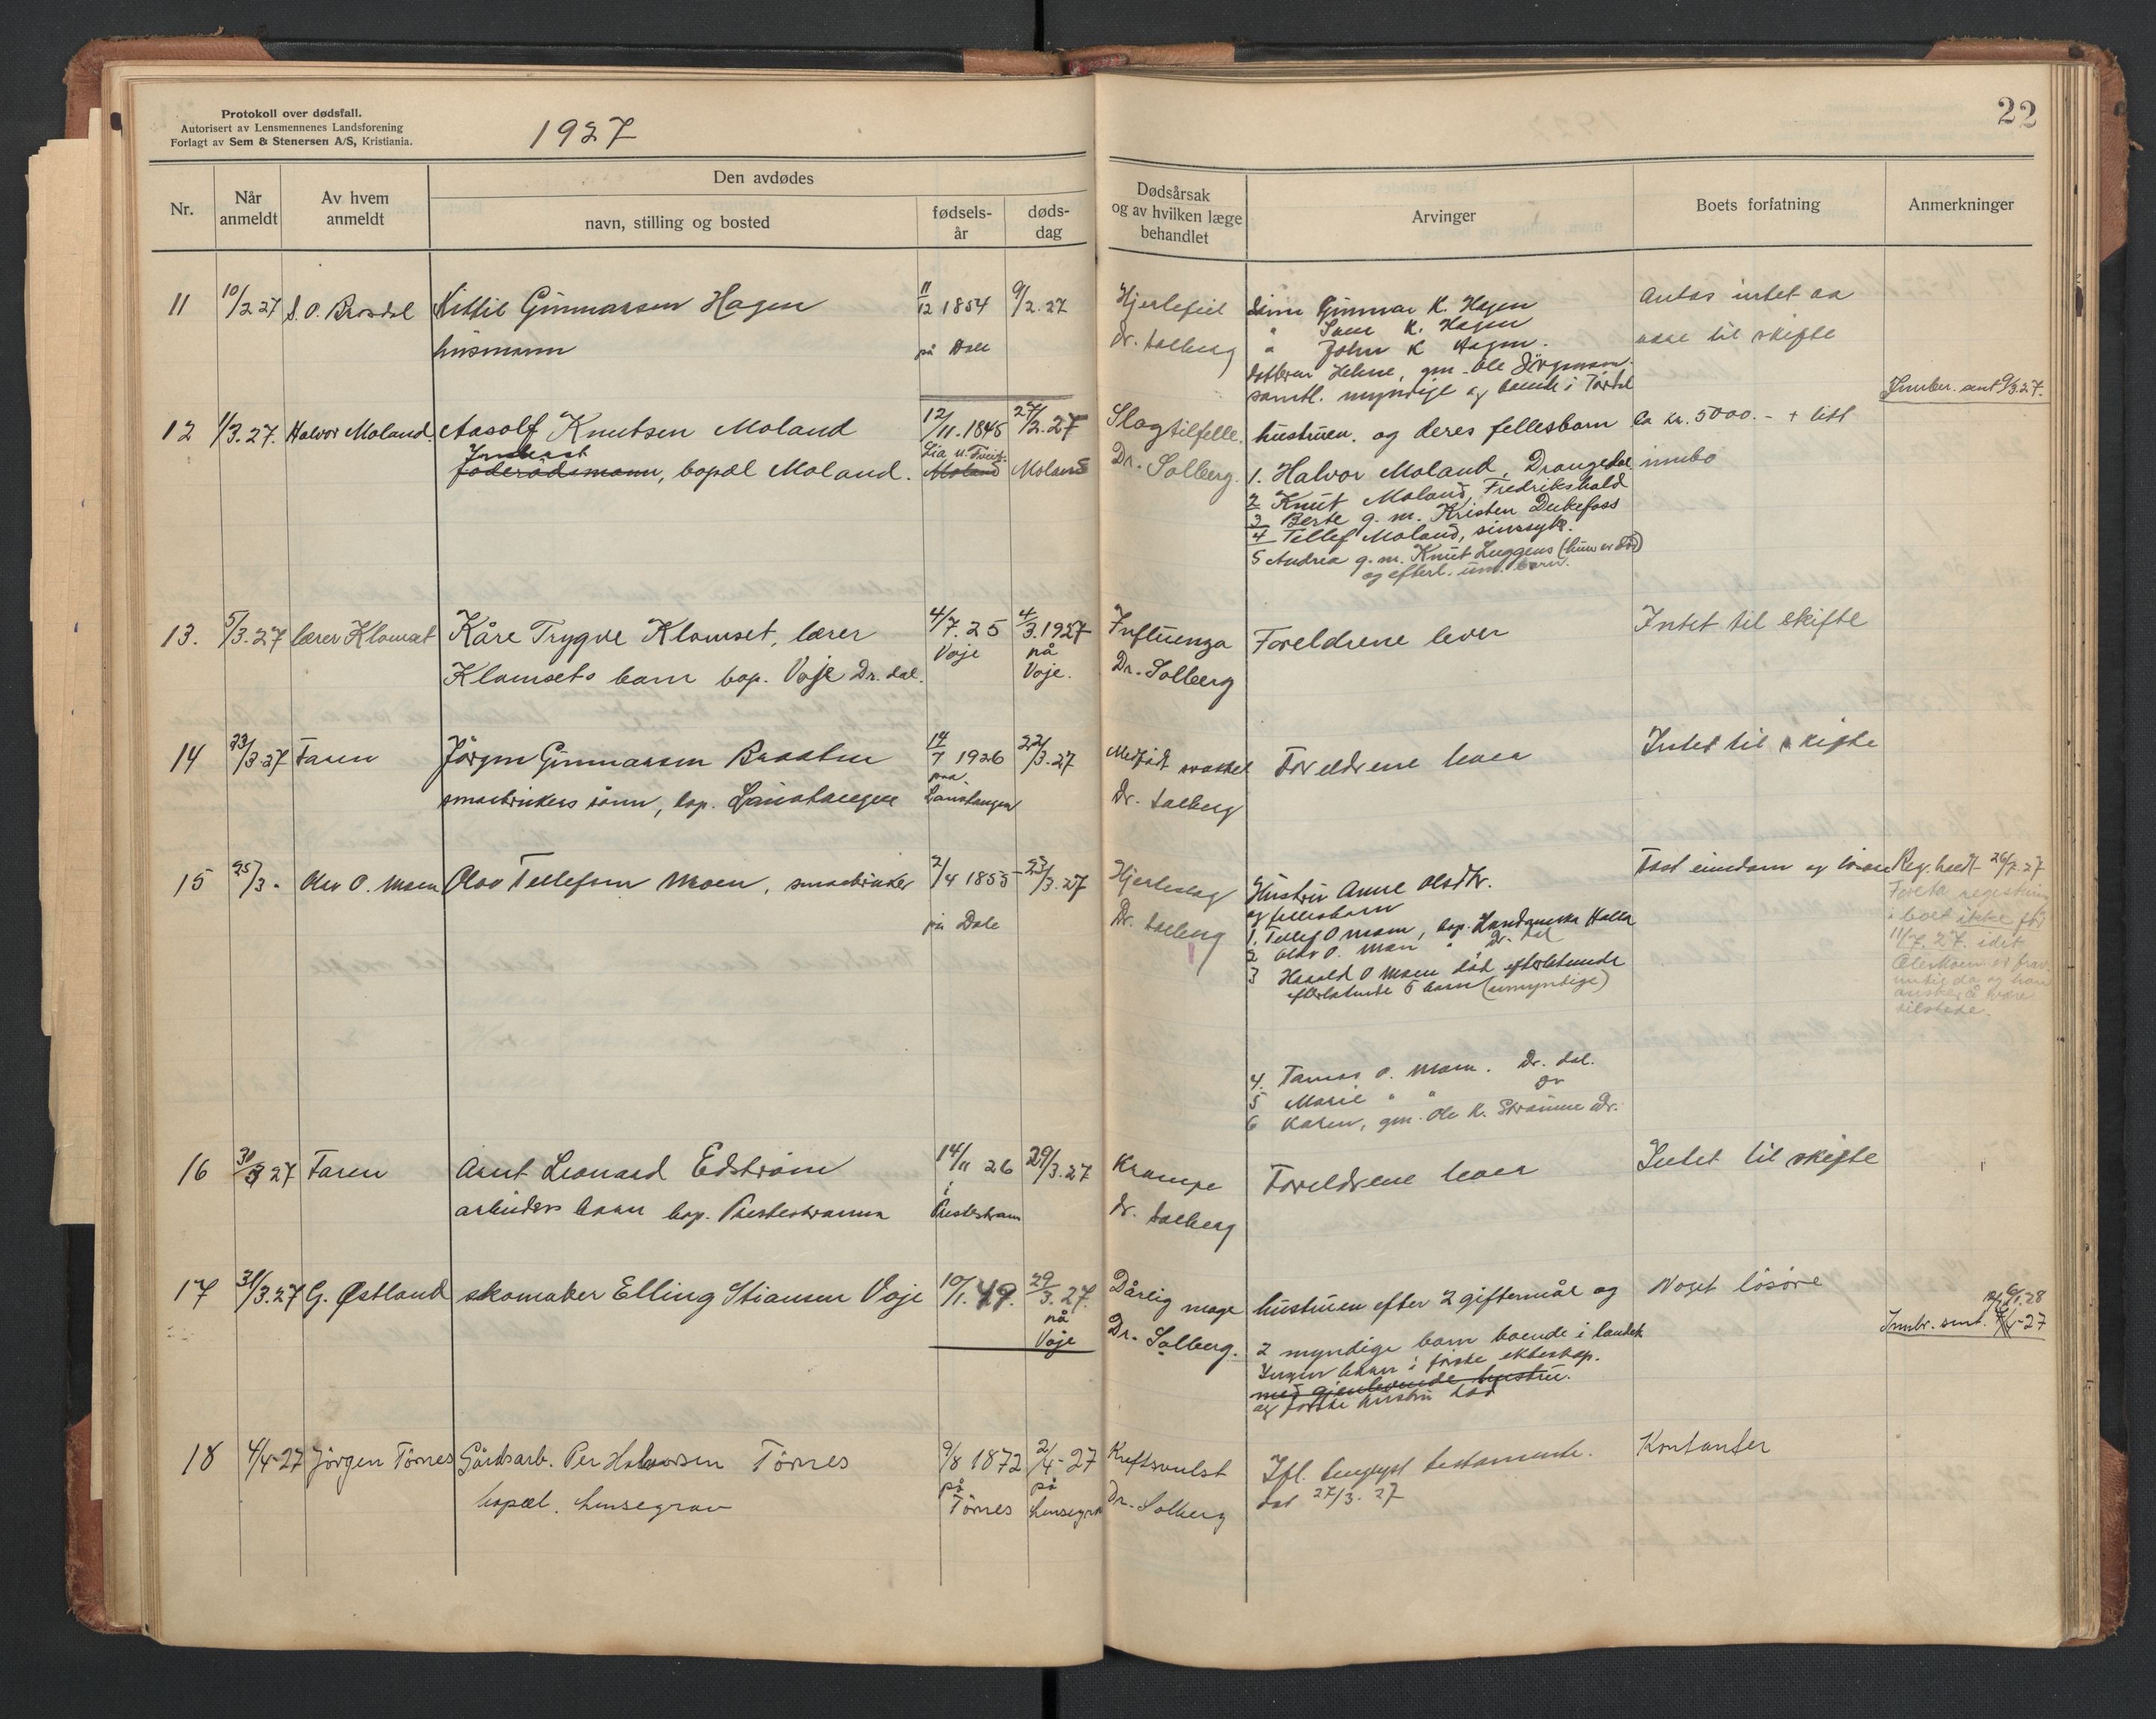 Protokoll over dødsfall.
Autorisert av Lensmennenes Landsforening
Forlagt av Sem & Stenersen A/S, Kristiania.
1927
22
Nr.
Når anmeldt
Av hvem anmeldt
Den avdødes
navn, stilling og bosted
fødsels-år
døds-dag
Dødsårsak og av hvilken læge behandlet
Arvinger
Boets forfatning
Anmerkninger
11 10/2 27 Kittil Gunnarsen Hagen 11/12 1854 9/2.27 Hjertefeil
husmann på Dale Dr. Solberg
Gunnar K. Hagen
" K. Hagen
" John K Hagen.
samtl. myndige og
Antas intet aa
til skifte
12 1/3.27. Halvor Moland. Aasolf Knutsen Moland 12/11.1845 27/2.27 Slagtilfelle.
föderådsmann, bopæl Moland. Moland Moland Dr. Solberg.
hustruen. og deres fellesbarn
1. Halvor Moland, Drangedal
2 Knut Moland, Fredrikshald
3 Berte g. m. Kristen Dukefoss
4 Tellef Moland, sinnsyk.
5 Andrea g. m. Knut Luggens (hun er död)
og efterl. um. barn.
Ca kr. 5000.- + litt
innbo
Innber. sent 9/3.27.
13. 5/3.27 lærer Klomset Kåre Trygve Klomset, lærer 4/7.25 4/3.1927 Influenza Foreldrene lever Intet til skifte
Klomsets barn bop. Voje Dr. dal. Voje på Voje. Dr. Solberg
14 23/3.27 Faren Jörgen Gunnarsen Braaten 14/7 1926 22/3.27 Medfödt svakhet Foreldrene lever Intet til skifte
smaabrukers sönn, bop. Laustangen paa Laustangen Dr. Solberg
15 25/3. Olav O. Moen Olav Tellefsen Moen, smaabruker 2/4 1855 23/3.27 Hjerteslag
på Dale Dr. Solberg
Hustru Anne Olsdtr.
og fellesbarn
1. Tellef O Moen, bop.
2 Olav O. Moen " Dr. dal
3 Harald O Moen död efterlatende
efterlatende 5 barn (umyndige)
4. O. Moen. Dr. dal.
5 Marie " " Dr
6 Karen, gm. Ole K. Strømme Dr.
Fast eiendom og lösöre
Reg. holdt 26/7.27
Foreta registrering
i boet ikke för
11/7.27. idet
er frav.
da og han
ønsker å være
tilstede.
16 30/3 27 Faren Arnt Leonard Edström 14/11 26 29/3.27 Krampe Foreldrene lever Intet til skifte
arbeiders barn bop. Prestestranna i Prestestran Dr. Solberg
17 31/3.27 G. Østland skomaker Elling Stiansen Voje 10/1.49. 29/3.27. Dårlig mage
på Voje Dr. Solberg.
hustruen efter 2 giftermål og
2 myndige barn boende i landet
Ingen barn i første ekteskap.
med gjenlevende hustru.
og første hustru död
Noget lösöre
Innbr. sent.
18 4/4-27 Jörgen Törnes Gårdsarb. Per Halvorsen Törnes 9/8 1872 2/4-27 Kreftsvulst
bopæl. Lensegrav på Törnes på Lensegrav Dr. Solberg
Ifl. testamente.
dat 27/3.27
Kontanter